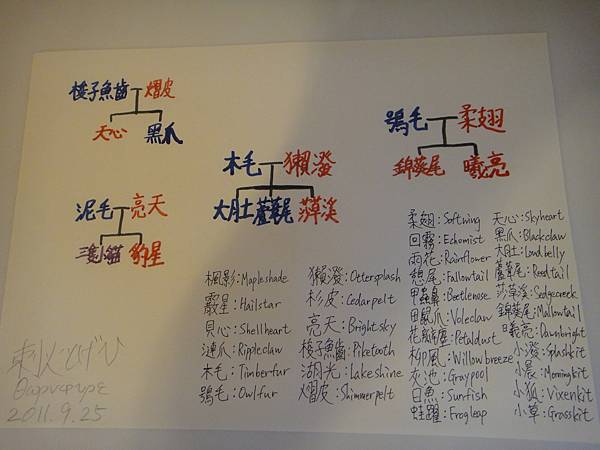 梭子魚齒 熠皮
天心 黑爪
泥毛 亮天
三隻小貓 豹星
木毛 獺潑
大肚 蘆葦尾 莎草溪
鴞毛 柔翅
錦葵尾 曦亮
楓影:Mapleshade
霰星:Hailstar
貝心:Shellheart
漣爪:Rippleclaw
木毛:Timberfur
鴞毛:Owlfur
獺潑:Ottersplash
杉皮:Cedarpelt
亮天:Brightsky
梭子魚齒:Piketooth
湖光:Lakeshine
熠皮:Shimmerpelt
柔翅:Softwing
回霧:Echomist
雨花:Rainflower
憩尾:Fallowtail
甲蟲鼻:Beetlenose
田鼠爪:Voleclaw
花瓣塵:Petaldust
柳風:Willowbreeze
灰池:Graypool
日魚:Sunfish
蛙躍:Frogleap
天心:Skyheart
黑爪:Blackclaw
大肚:Loudbelly
蘆葦尾:Reedtail
莎草溪:Sedgecreek
錦葵尾:Mallowtail
曦亮:Dawnbright
小潑:Splashkit
小晨:Morningkit
小狐:Vixenkit
小草:Grasskit
2011.9.25